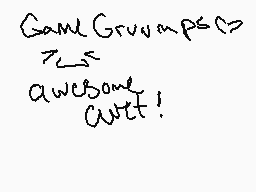 Game Grumps <3
>_<
awesome
cutt!